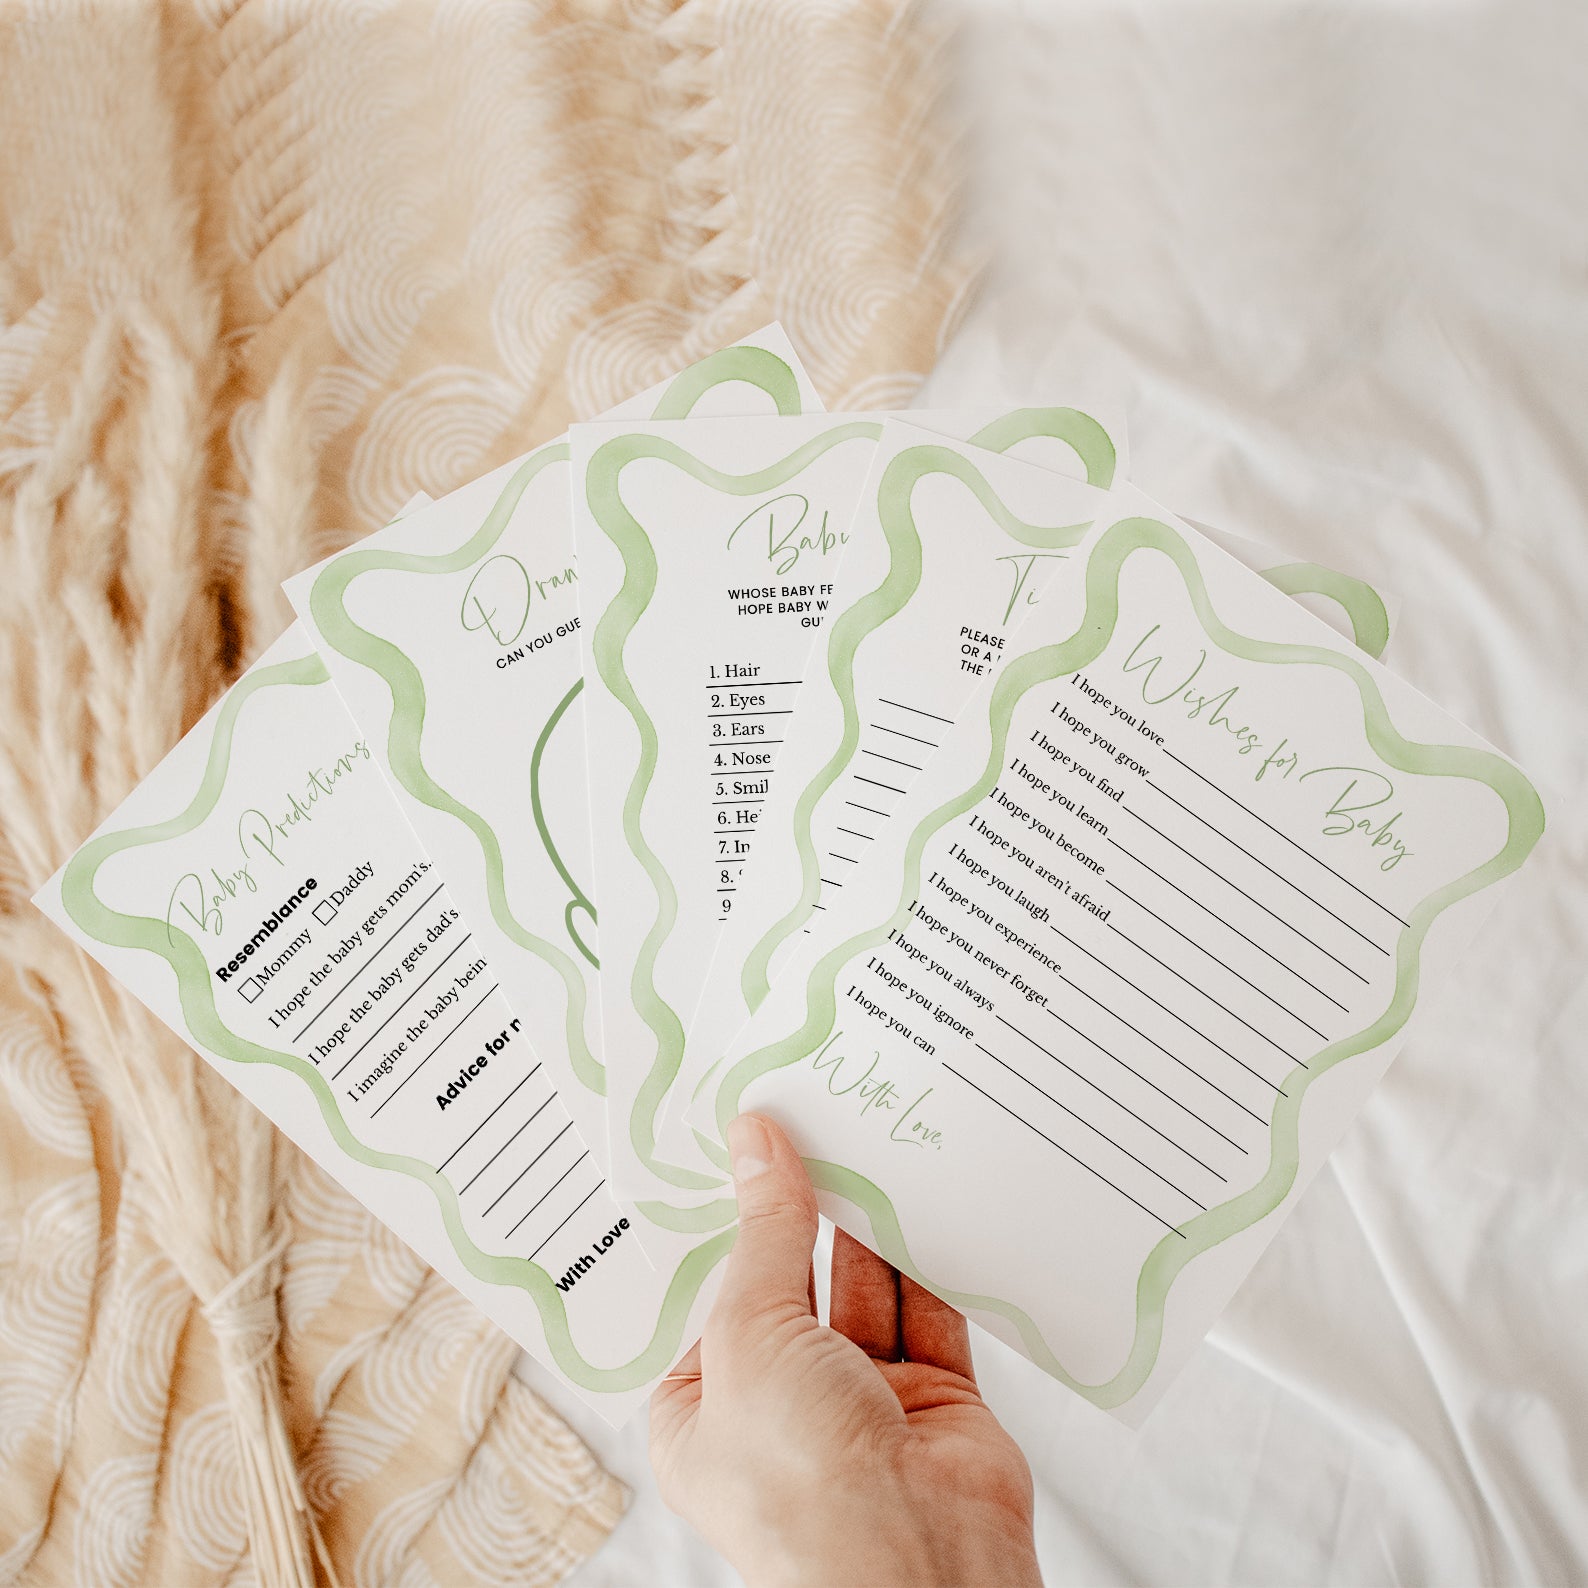 Baby Predictions
Resemblance
Mommy Daddy
I hope the baby gets mom's..
I hope the baby gets dad's
I imagine the baby
Advice for
With Love
CAN YOU
Baby
WHOSE BABY
HOPE BABY
1. Hair
2. Eyes
3. Ears
4. Nose
5.
6.
7.
8.
9
PLEASE
OR A
THE
Wishes for Baby
I hope you love
I hope you grow
I hope you find
I hope you learn
I hope you become
I hope you aren't afraid
I hope you laugh
I hope you experience
I hope you never forget
I hope you always
I hope you ignore
I hope you can
With Love,